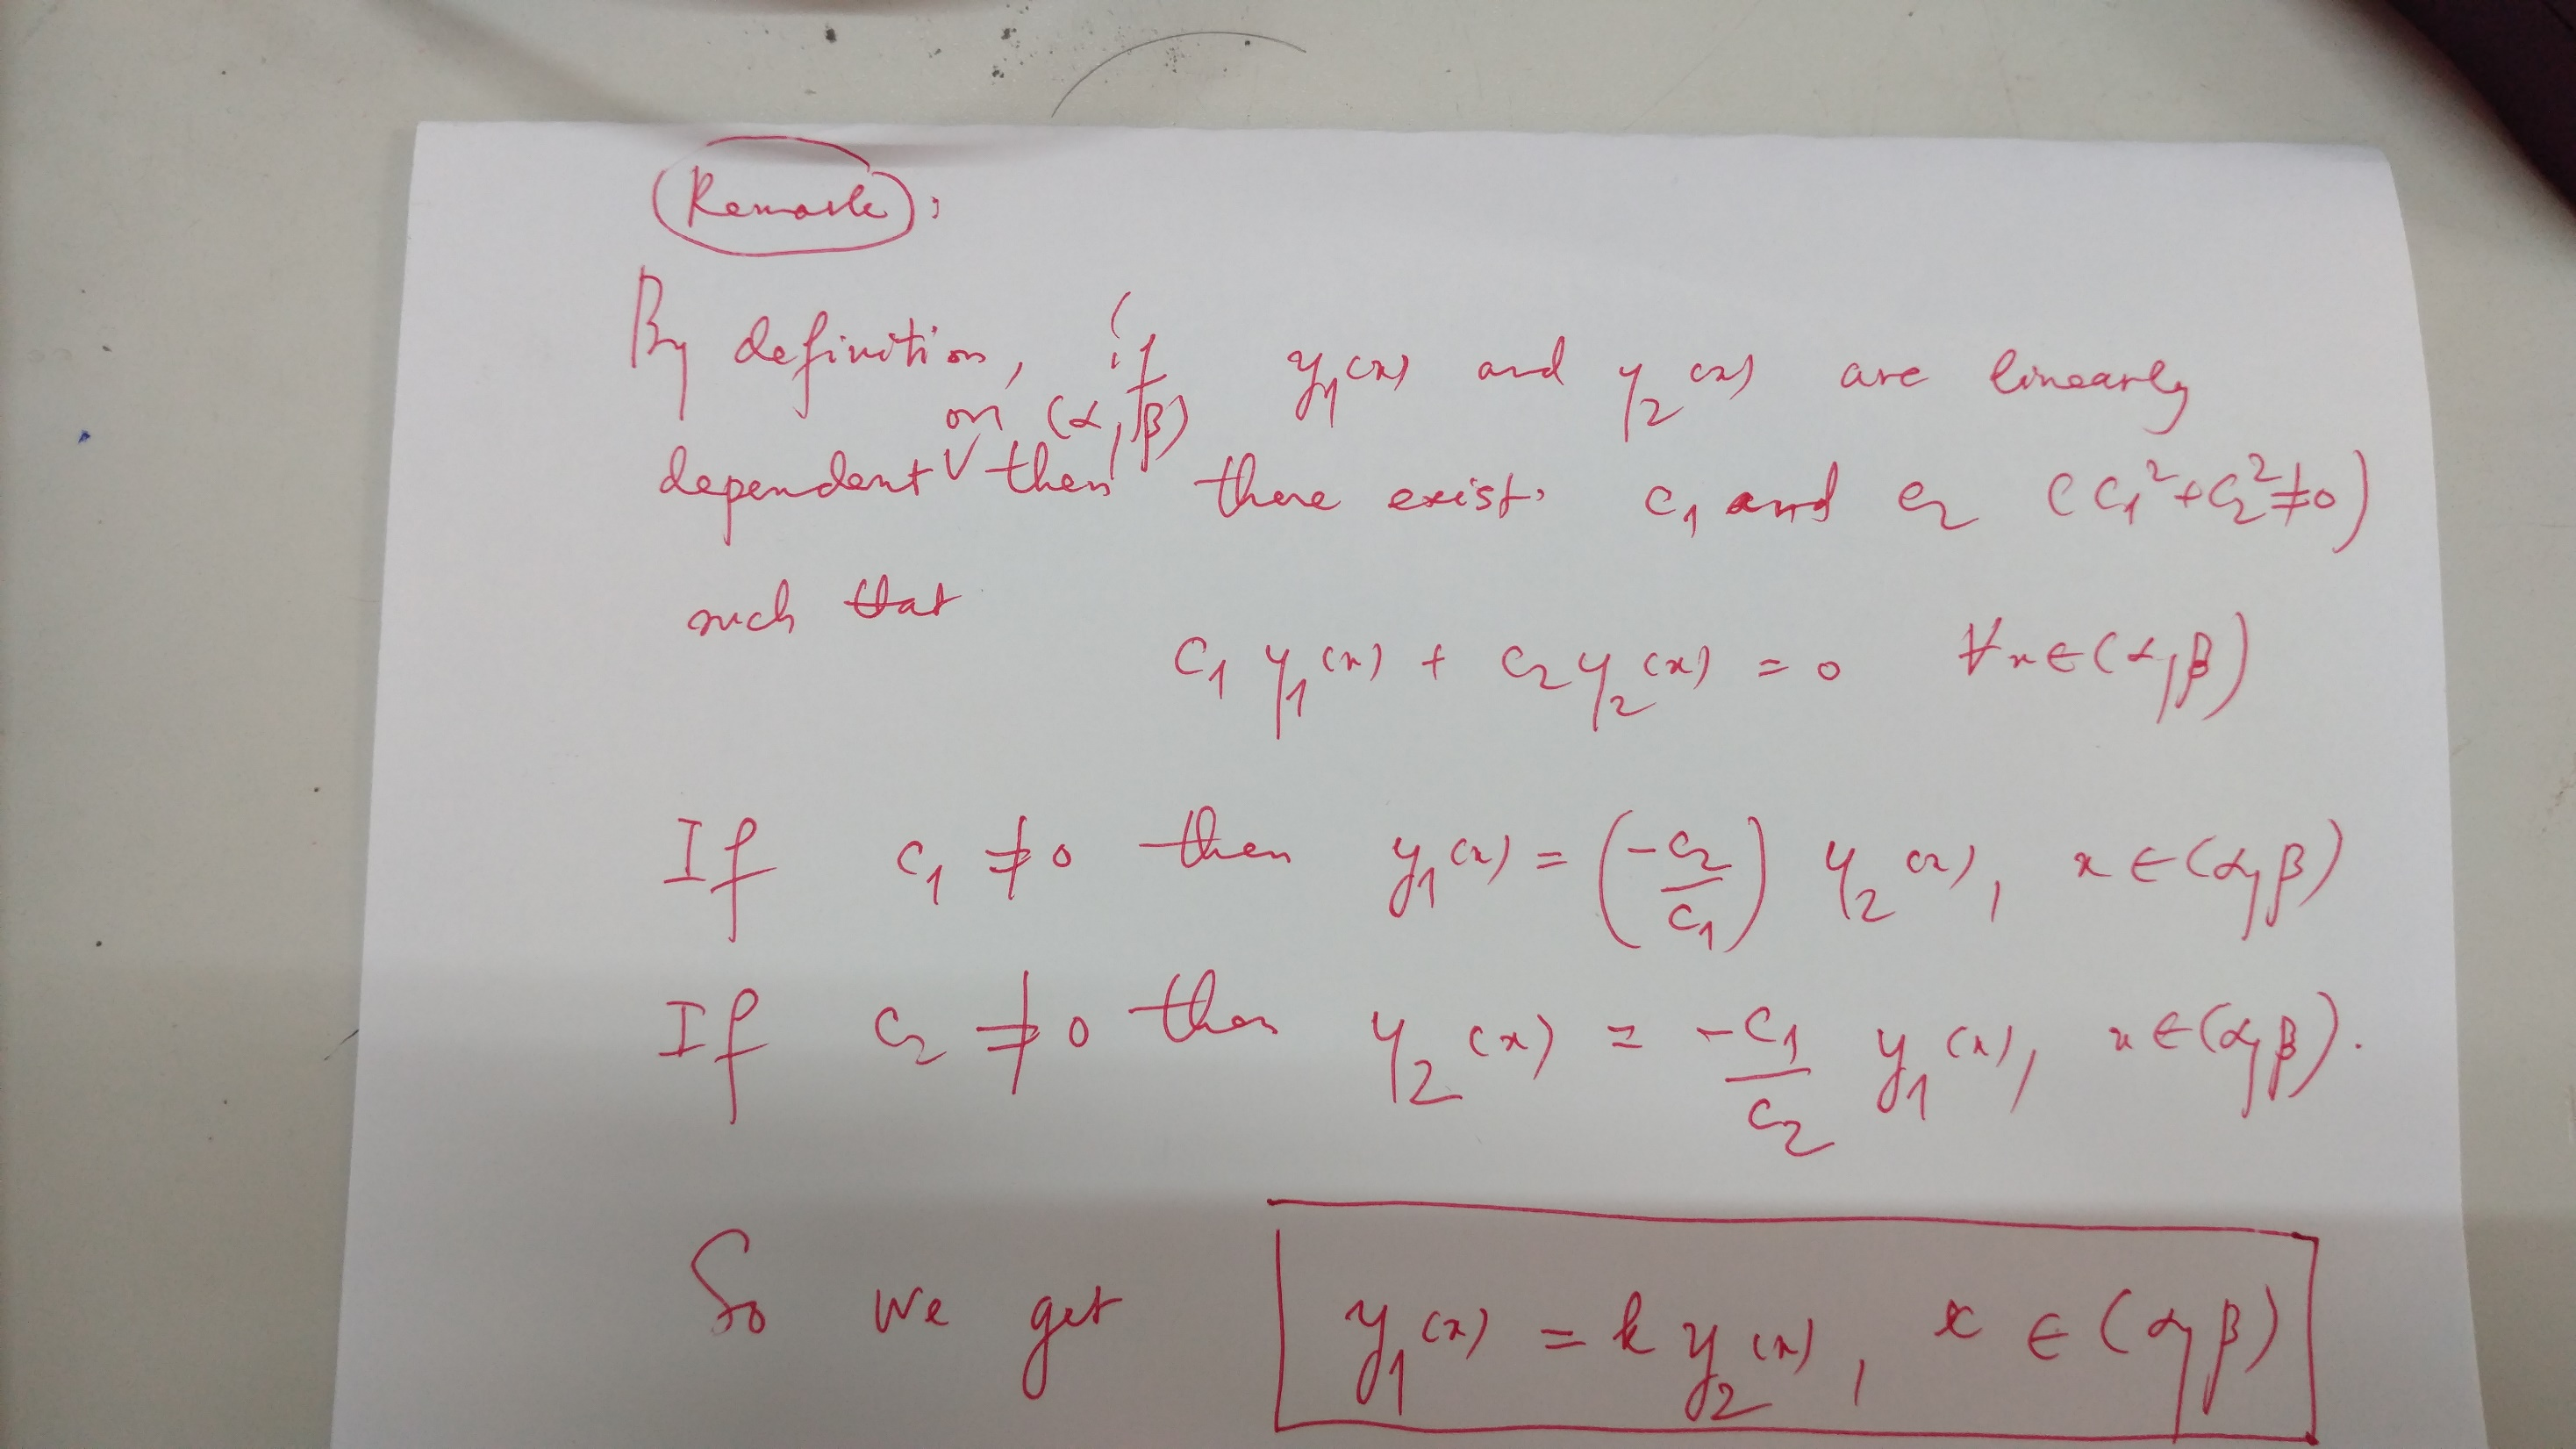 Remark:
By definition, if y₁(x) and y₂(x) are linearly
on (α, β)
dependent ∨ then there exist c₁ and c₂ (c₁² + c₂² ≠ 0)
such that
c₁ y₁(x) + c₂ y₂(x) = 0 ∀x ∈ (α, β)
If c₁ ≠ 0 then y₁(x) = (-c₂/c₁) y₂(x), x ∈ (α, β)
If c₂ ≠ 0 then y₂(x) = -c₁/c₂ y₁(x), x ∈ (α, β).
So we get y₁(x) = k y₂(x), x ∈ (α, β)